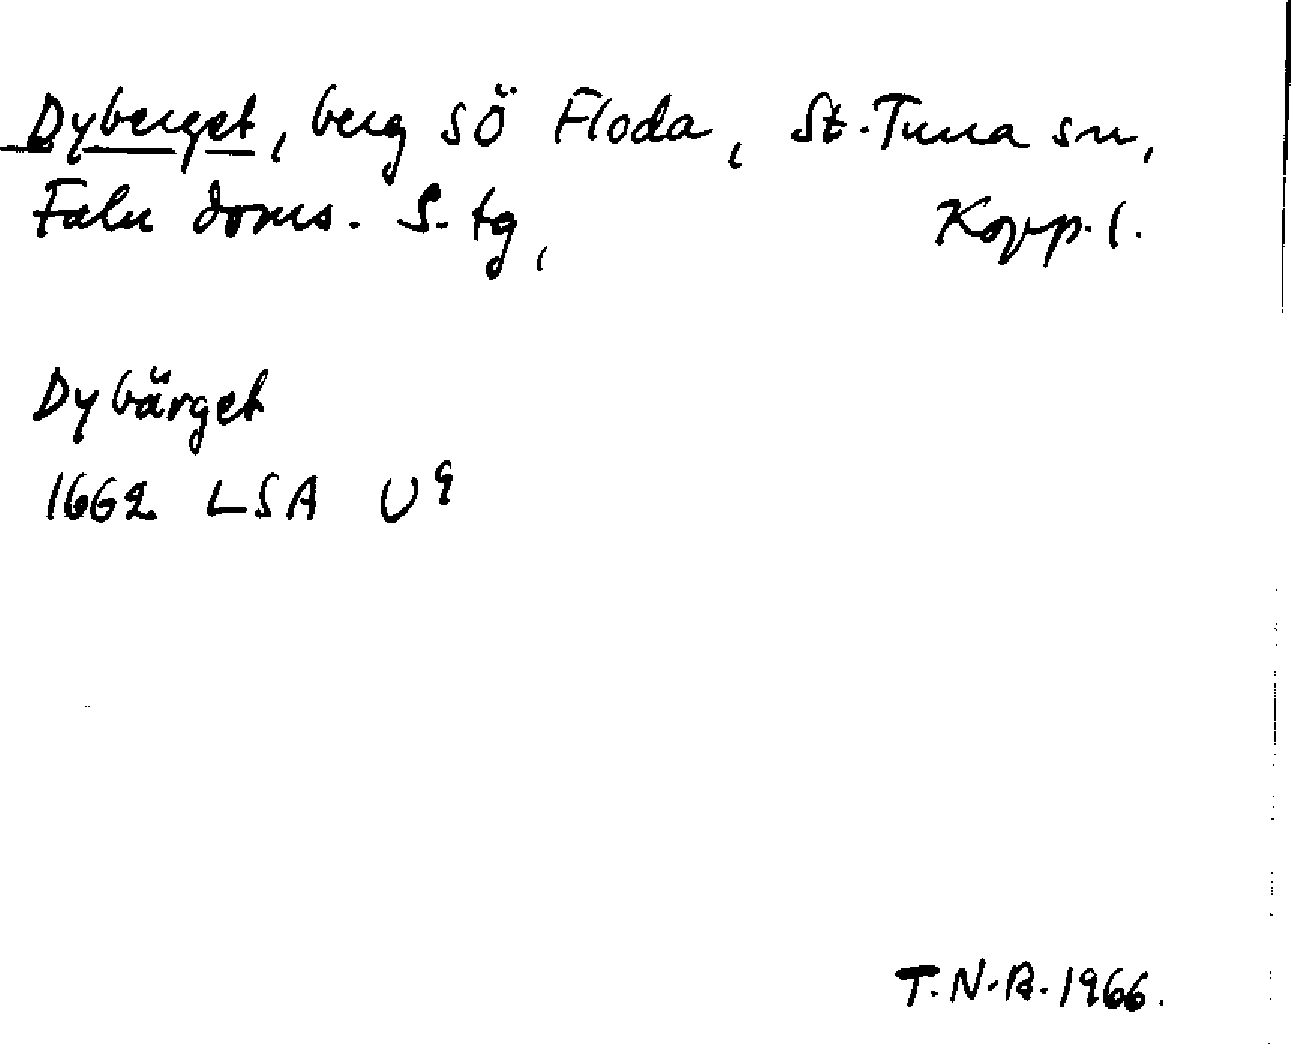 Dyberget, berg SÖ Floda, St. Tuna sn,
Falu doms. S. tg, Kopp. l.
Dybärget
1662 LSA U9
T.N.B. 1966.